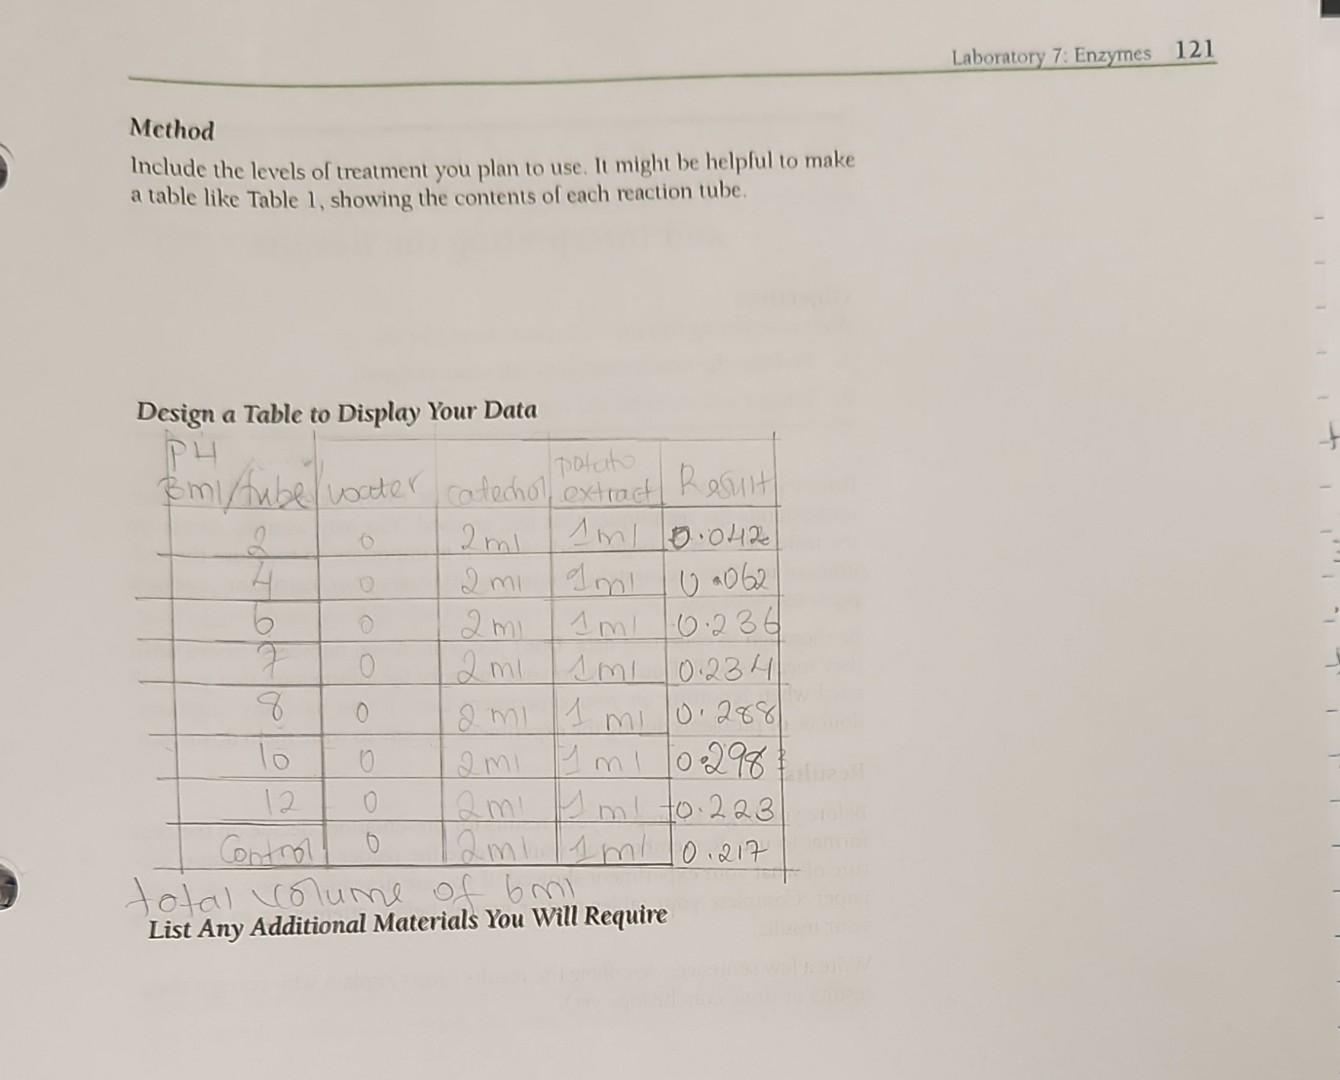 Laboratory 7: Enzymes 121
Method
Include the levels of treatment you plan to use. It might be helpful to make
a table like Table 1, showing the contents of each reaction tube.
Design a Table to Display Your Data
PH 3ml/tube water catechol potato extract Result
2 0 2ml 1ml 0.042
4 0 2ml 1ml 0.062
6 0 2ml 1ml 0.236
7 0 2ml 1ml 0.234
8 0 2ml 1ml 0.288
10 0 2ml 1ml 0.298
12 0 2ml 1ml 0.223
Control 0 2ml 1ml 0.217
total volume of 6ml
List Any Additional Materials You Will Require